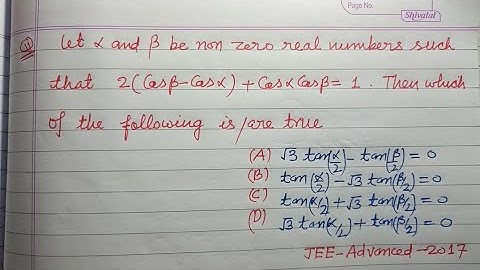 Page No.
Shivalal
Q Let α and β be non zero real numbers such
that 2(Cosβ-Cosα)+CosαCosβ= 1. Then which
of the following is/are true
(A) √3 tan(α/2) - tan(β/2) = 0
(B) tan(α/2) - √3 tan(β/2) = 0
(C) tan(α/2) + √3 tan(β/2) = 0
(D) √3 tan(α/2) + tan(β/2) = 0
JEE-Advanced-2017